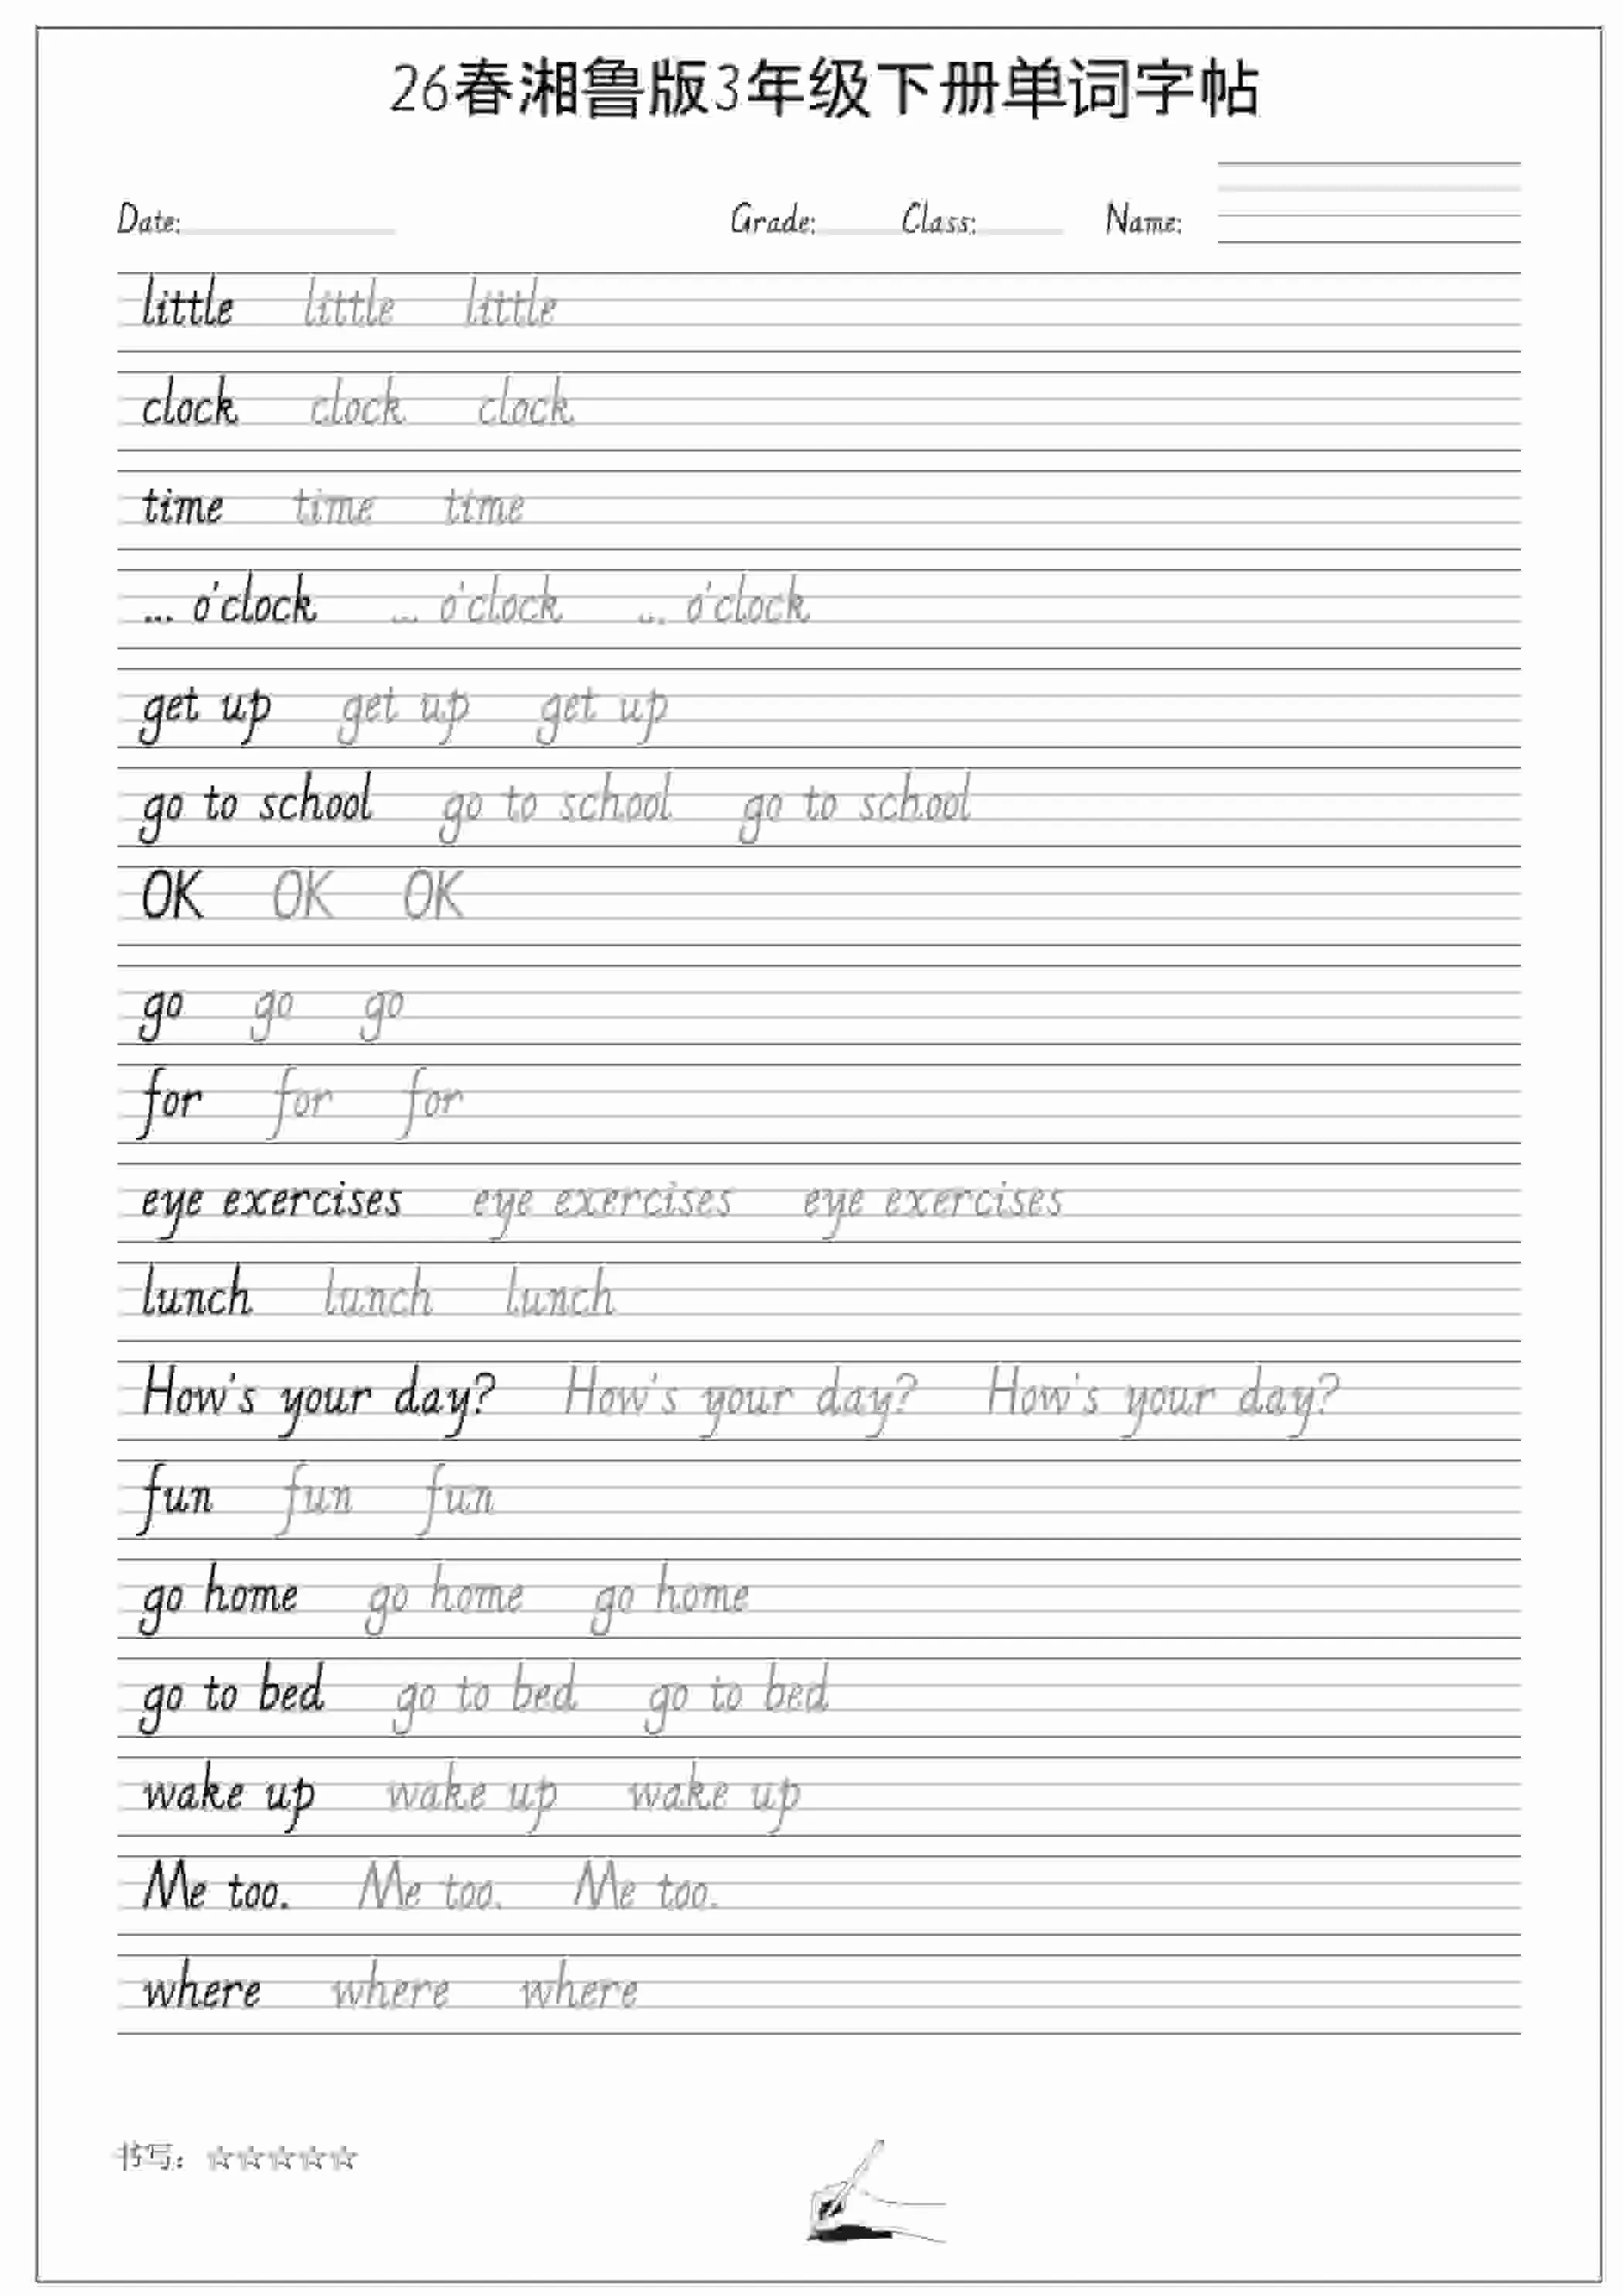 26春湘鲁版3年级下册单词字帖
Date: Grade: Class: Name:
little little little
clock clock clock
time time time
... o'clock ... o'clock ... o'clock
get up get up get up
go to school go to school go to school
OK OK OK
go go go
for for for
eye exercises eye exercises eye exercises
lunch lunch lunch
How's your day? How's your day? How's your day?
fun fun fun
go home go home go home
go to bed go to bed go to bed
wake up wake up wake up
Me too. Me too. Me too.
where where where
书写：☆☆☆☆☆